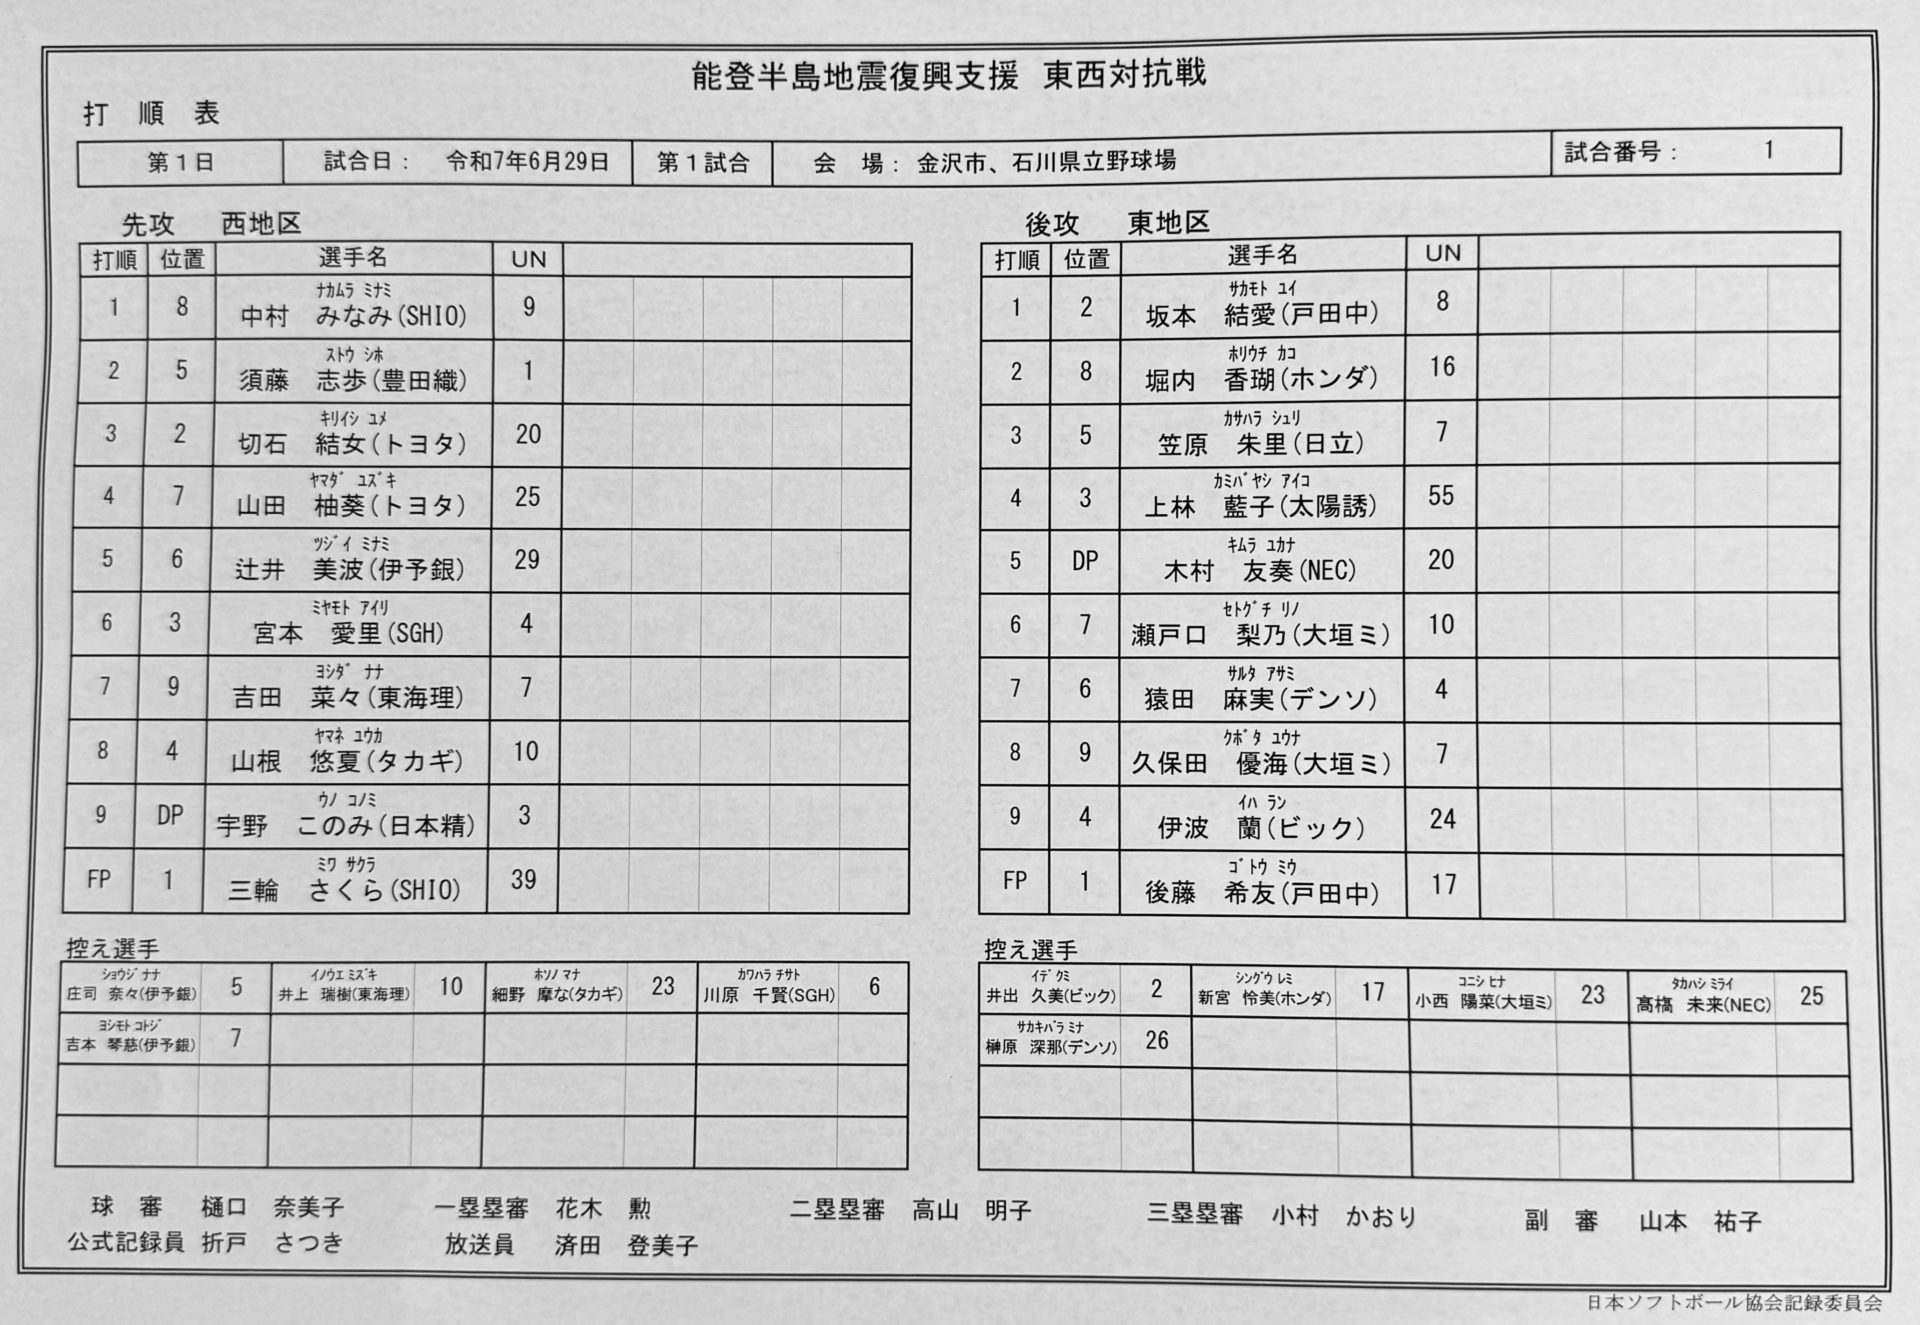 能登半島地震復興支援 東西対抗戦
打 順 表
第1日 試合日: 令和7年6月29日 第1試合 会 場: 金沢市、石川県立野球場 試合番号: 1
先攻 西地区
打順 位置 選手名 UN
ナカムラ ミナミ
1 8 中村 みなみ(SHIO) 9
ストウ シホ
2 5 須藤 志歩(豊田織) 1
キリイシ ユメ
3 2 切石 結女(トヨタ) 20
ヤマダ ユズキ
4 7 山田 柚葵(トヨタ) 25
ツジイ ミナミ
5 6 辻井 美波(伊予銀) 29
ミヤモト アイリ
6 3 宮本 愛里(SGH) 4
ヨシダ ナナ
7 9 吉田 菜々(東海理) 7
ヤマネ ユウカ
8 4 山根 悠夏(タカギ) 10
ウノ コノミ
9 DP 宇野 このみ(日本精) 3
ミワ サクラ
FP 1 三輪 さくら(SHIO) 39
控え選手
ショウジ ナナ イノウエ ミズキ ホソノ マナ カワハラ チサト
庄司 奈々(伊予銀) 5 井上 瑞樹(東海理) 10 細野 摩な(タカギ) 23 川原 千賢(SGH) 6
ヨシモト コトジ
吉本 琴慈(伊予銀) 7
後攻 東地区
打順 位置 選手名 UN
サカモト ユイ
1 2 坂本 結愛(戸田中) 8
ホリウチ カコ
2 8 堀内 香瑚(ホンダ) 16
カサハラ シュリ
3 5 笠原 朱里(日立) 7
カミバヤシ アイコ
4 3 上林 藍子(太陽誘) 55
キムラ ユカナ
5 DP 木村 友奏(NEC) 20
セトグチ リノ
6 7 瀬戸口 梨乃(大垣ミ) 10
サルタ アサミ
7 6 猿田 麻実(デンソ) 4
クボタ ユウナ
8 9 久保田 優海(大垣ミ) 7
イハ ラン
9 4 伊波 蘭(ビック) 24
ゴトウ ミウ
FP 1 後藤 希友(戸田中) 17
控え選手
イデ クミ シングウ レミ コニシ ヒナ タカハシ ミライ
井出 久美(ビック) 2 新宮 怜美(ホンダ) 17 小西 陽菜(大垣ミ) 23 髙橋 未来(NEC) 25
サカキバラ ミナ
榊原 深那(デンソ) 26
球 審 樋口 奈美子 一塁塁審 花木 勲 二塁塁審 高山 明子 三塁塁審 小村 かおり 副 審 山本 祐子
公式記録員 折戸 さつき 放送員 済田 登美子
日本ソフトボール協会記録委員会